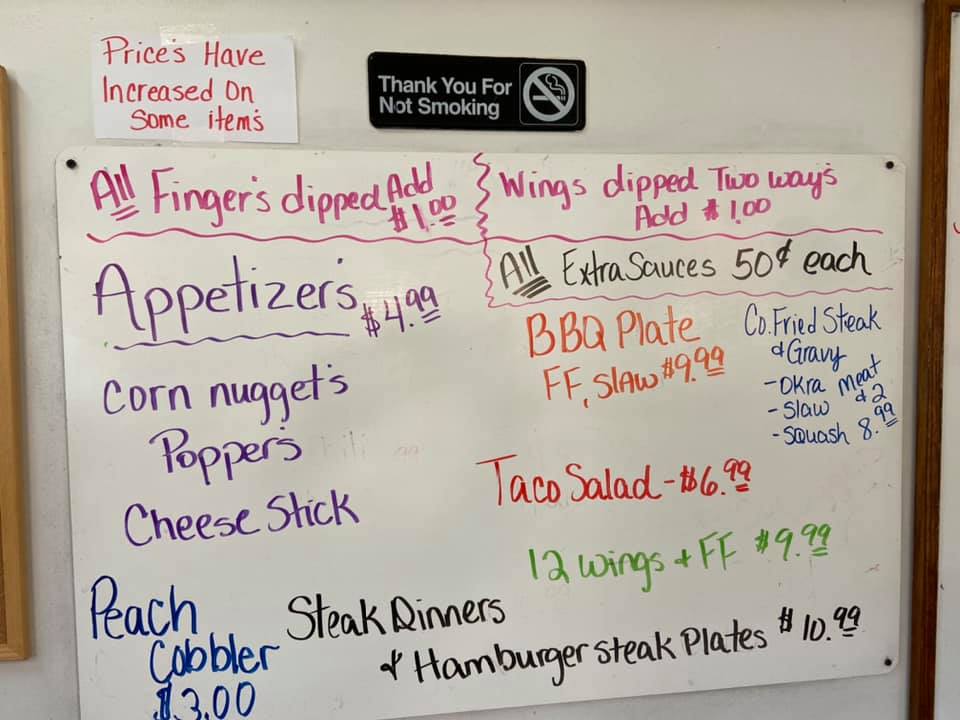 Price's Have
Increased On
Some item's
Thank You For
Not Smoking
All Finger's dipped Add
$1.00
Wings dipped Two way's
Add $1.00
All Extra Sauces 50¢ each
Appetizer's $4.99
corn nugget's
Popper's
Cheese Stick
BBQ Plate
FF, Slaw $9.99
Co. Fried Steak
& Gravy
- Okra meat
- Slaw & 2
- Squash 8.99
Taco Salad - $6.99
12 wings & FF $9.99
Peach
Cobbler
$3.00
Steak Dinners
& Hamburger steak Plates $10.99